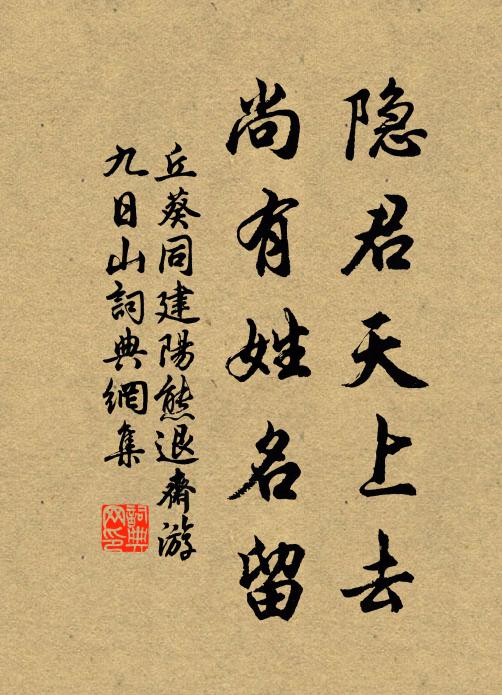 隐君天上去
尚有姓名留
丘葵同建陽熊退齋游
九日山詞典網集
詞典网印